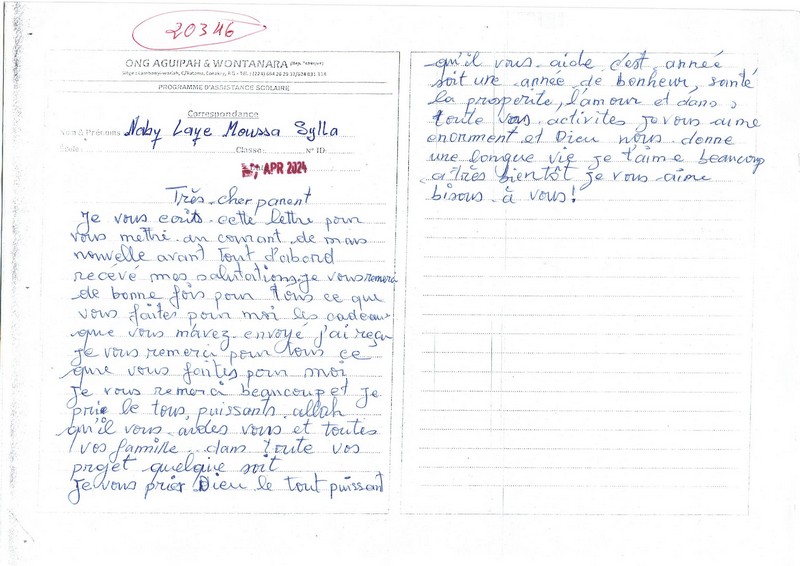 20346
ONG AGUIPAH & WONTANARA
PROGRAMME D'ASSISTANCE SCOLAIRE
Correspondance
Nom & Prénoms Naby Laye Moussa Sylla
Ecole: Classe: N° ID:
APR 2024
Très cher parent
Je vous ecris cette lettre pour
vous methre au courant de mais
nouvelle avant tout d'abord
recévé mes salutations je vous remerci
de bonne fois pour tous ce que
vous faites pour moi les cadeaux
que vous m'avez envoyé j'ai reçu
je vous remerci pour tous ce
que vous faites pour moi
je vous remercie beaucoup et je
prie le tous puissants allah
qu'il vous aides vous et toutes
vos famille dans toute vos
projet quelque soit
je vous prier Dieu le tout puissant
qu'il vous aide c'est année
soit une année de bonheur, santé
la prosperite, l'amour et dans
toute vos activites je vous aime
enorment et Dieu nous donne
une longue vie je t'aime beaucoup
a très bientôt je vous aime
bisous à vous!